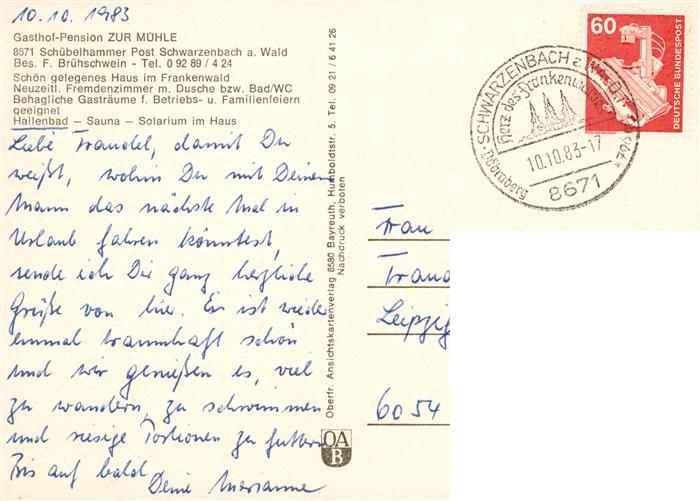 10.10.1983
Gasthof-Pension ZUR MÜHLE
8671 Schübelhammer Post Schwarzenbach a. Wald
Bes. F. Brühschwein - Tel. 0 92 89 / 4 24
Schön gelegenes Haus im Frankenwald
Neuzeitl. Fremdenzimmer m. Dusche bzw. Bad/WC
Behagliche Gasträume f. Betriebs- u. Familienfeiern
geeignet
Hallenbad – Sauna – Solarium im Haus
Liebe Traudel, damit Du
weißt, wohin Du mit Deinem
Mann das nächste Mal in
Urlaub fahren könntest,
sende ich Dir ganz herzliche
Grüße von hier. Es ist wieder
einmal traumhaft schön
und wir genießen es, viel
zu wandern, zu schwimmen
und riesige Portionen zu futtern
Bis auf bald
Deine Marianne
Oberfr. Ansichtskartenverlag 8580 Bayreuth, Humboldtstr. 5, Tel. 09 21 / 6 41 26
Nachdruck verboten
OA
B
60
DEUTSCHE BUNDESPOST
SCHWARZENBACH a. WALD
Herz des Frankenwaldes
10.10.83-17
Döbraberg
8671
Frau
Traud
Leipzig
6054